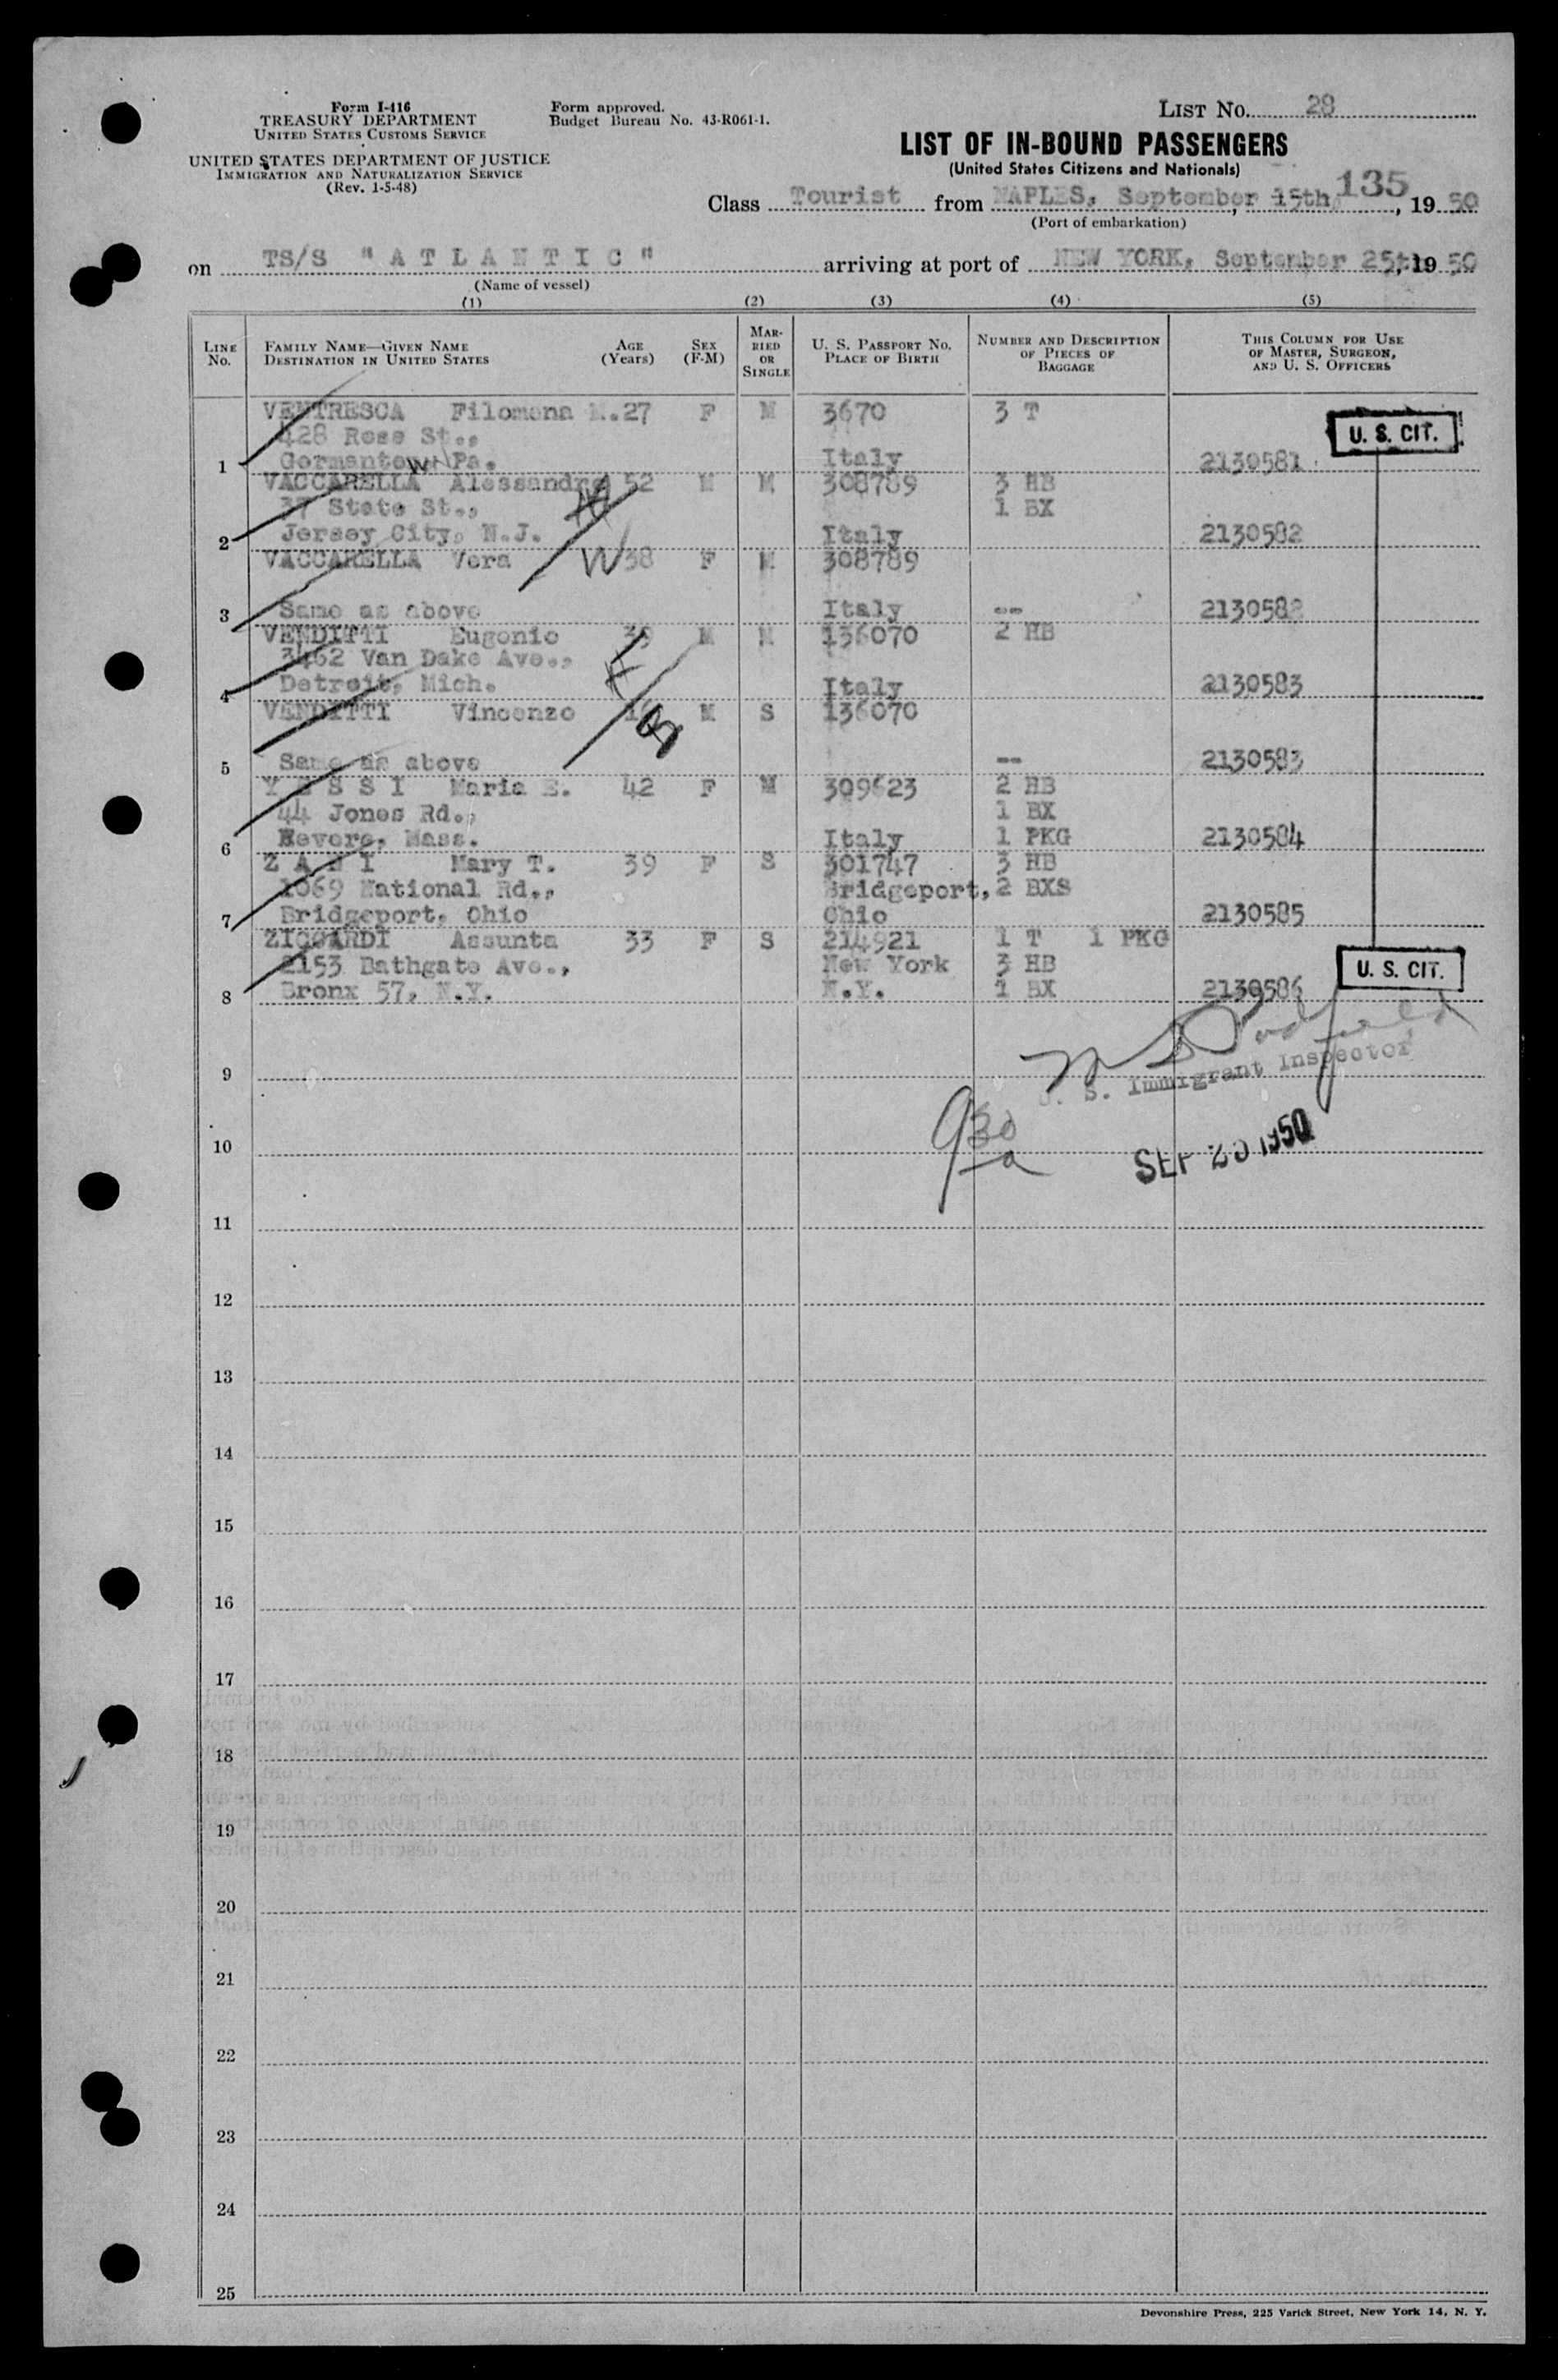 Form I-416
TREASURY DEPARTMENT
UNITED STATES CUSTOMS SERVICE
UNITED STATES DEPARTMENT OF JUSTICE
IMMIGRATION AND NATURALIZATION SERVICE
(Rev. 1-5-48)
Form approved.
Budget Bureau No. 43-R061-1.
LIST No. 28
LIST OF IN-BOUND PASSENGERS
(United States Citizens and Nationals)
135
Class Tourist from NAPLES, September 15th, 1950
(Port of embarkation)
on TS/S "ATLANTIC" arriving at port of NEW YORK, September 25th, 1950
(Name of vessel)
(1) (2) (3) (4) (5)
LINE No. FAMILY NAME—GIVEN NAME DESTINATION IN UNITED STATES AGE (Years) SEX (F-M) MARRIED OR SINGLE U. S. PASSPORT No. PLACE OF BIRTH NUMBER AND DESCRIPTION OF PIECES OF BAGGAGE THIS COLUMN FOR USE OF MASTER, SURGEON, AND U. S. OFFICERS
VENTRESCA Filomena M. 27 F M 3670 3 T
428 Ross St., U. S. CIT.
1 Germantown Pa. Italy 2130581
VACCARELLA Alessandro 52 M M 308789 3 HB
37 State St., 1 BX
2 Jersey City, N.J. Italy 2130582
VACCARELLA Vera W 38 F M 308789
3 Same as above Italy -- 2130582
VENDITTI Eugenio 39 M M 136070 2 HB
3462 Van Dake Ave.,
4 Detroit, Mich. Italy 2130583
VENDITTI Vincenzo M S 136070
5 Same as above -- 2130583
Y E S S I Maria E. 42 F M 309623 2 HB
44 Jones Rd., 1 BX
6 Revere, Mass. Italy 1 PKG 2130584
Mary T. 39 F S 301747 3 HB
1069 National Rd., Bridgeport, 2 BXS
7 Bridgeport, Ohio Ohio 2130585
ZICCARDI Assunta 33 F S 214921 1 T 1 PKG
2153 Bathgate Ave., New York 3 HB U. S. CIT.
8 Bronx 57, N.Y. N.Y. 1 BX 2130586
9 U. S. Immigrant Inspector
930 a
10 SEP 1950
11
12
13
14
15
16
17
18
19
20
21
22
23
24
25
Devonshire Press, 225 Varick Street, New York 14, N. Y.